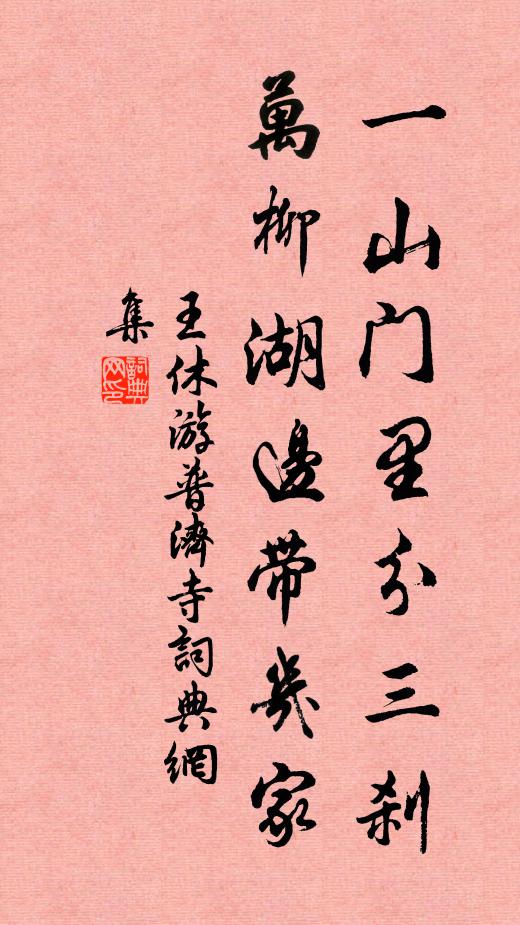 一山门里分三刹
萬柳湖邊带幾家
王休游普濟寺詞典網
集
詞典网印